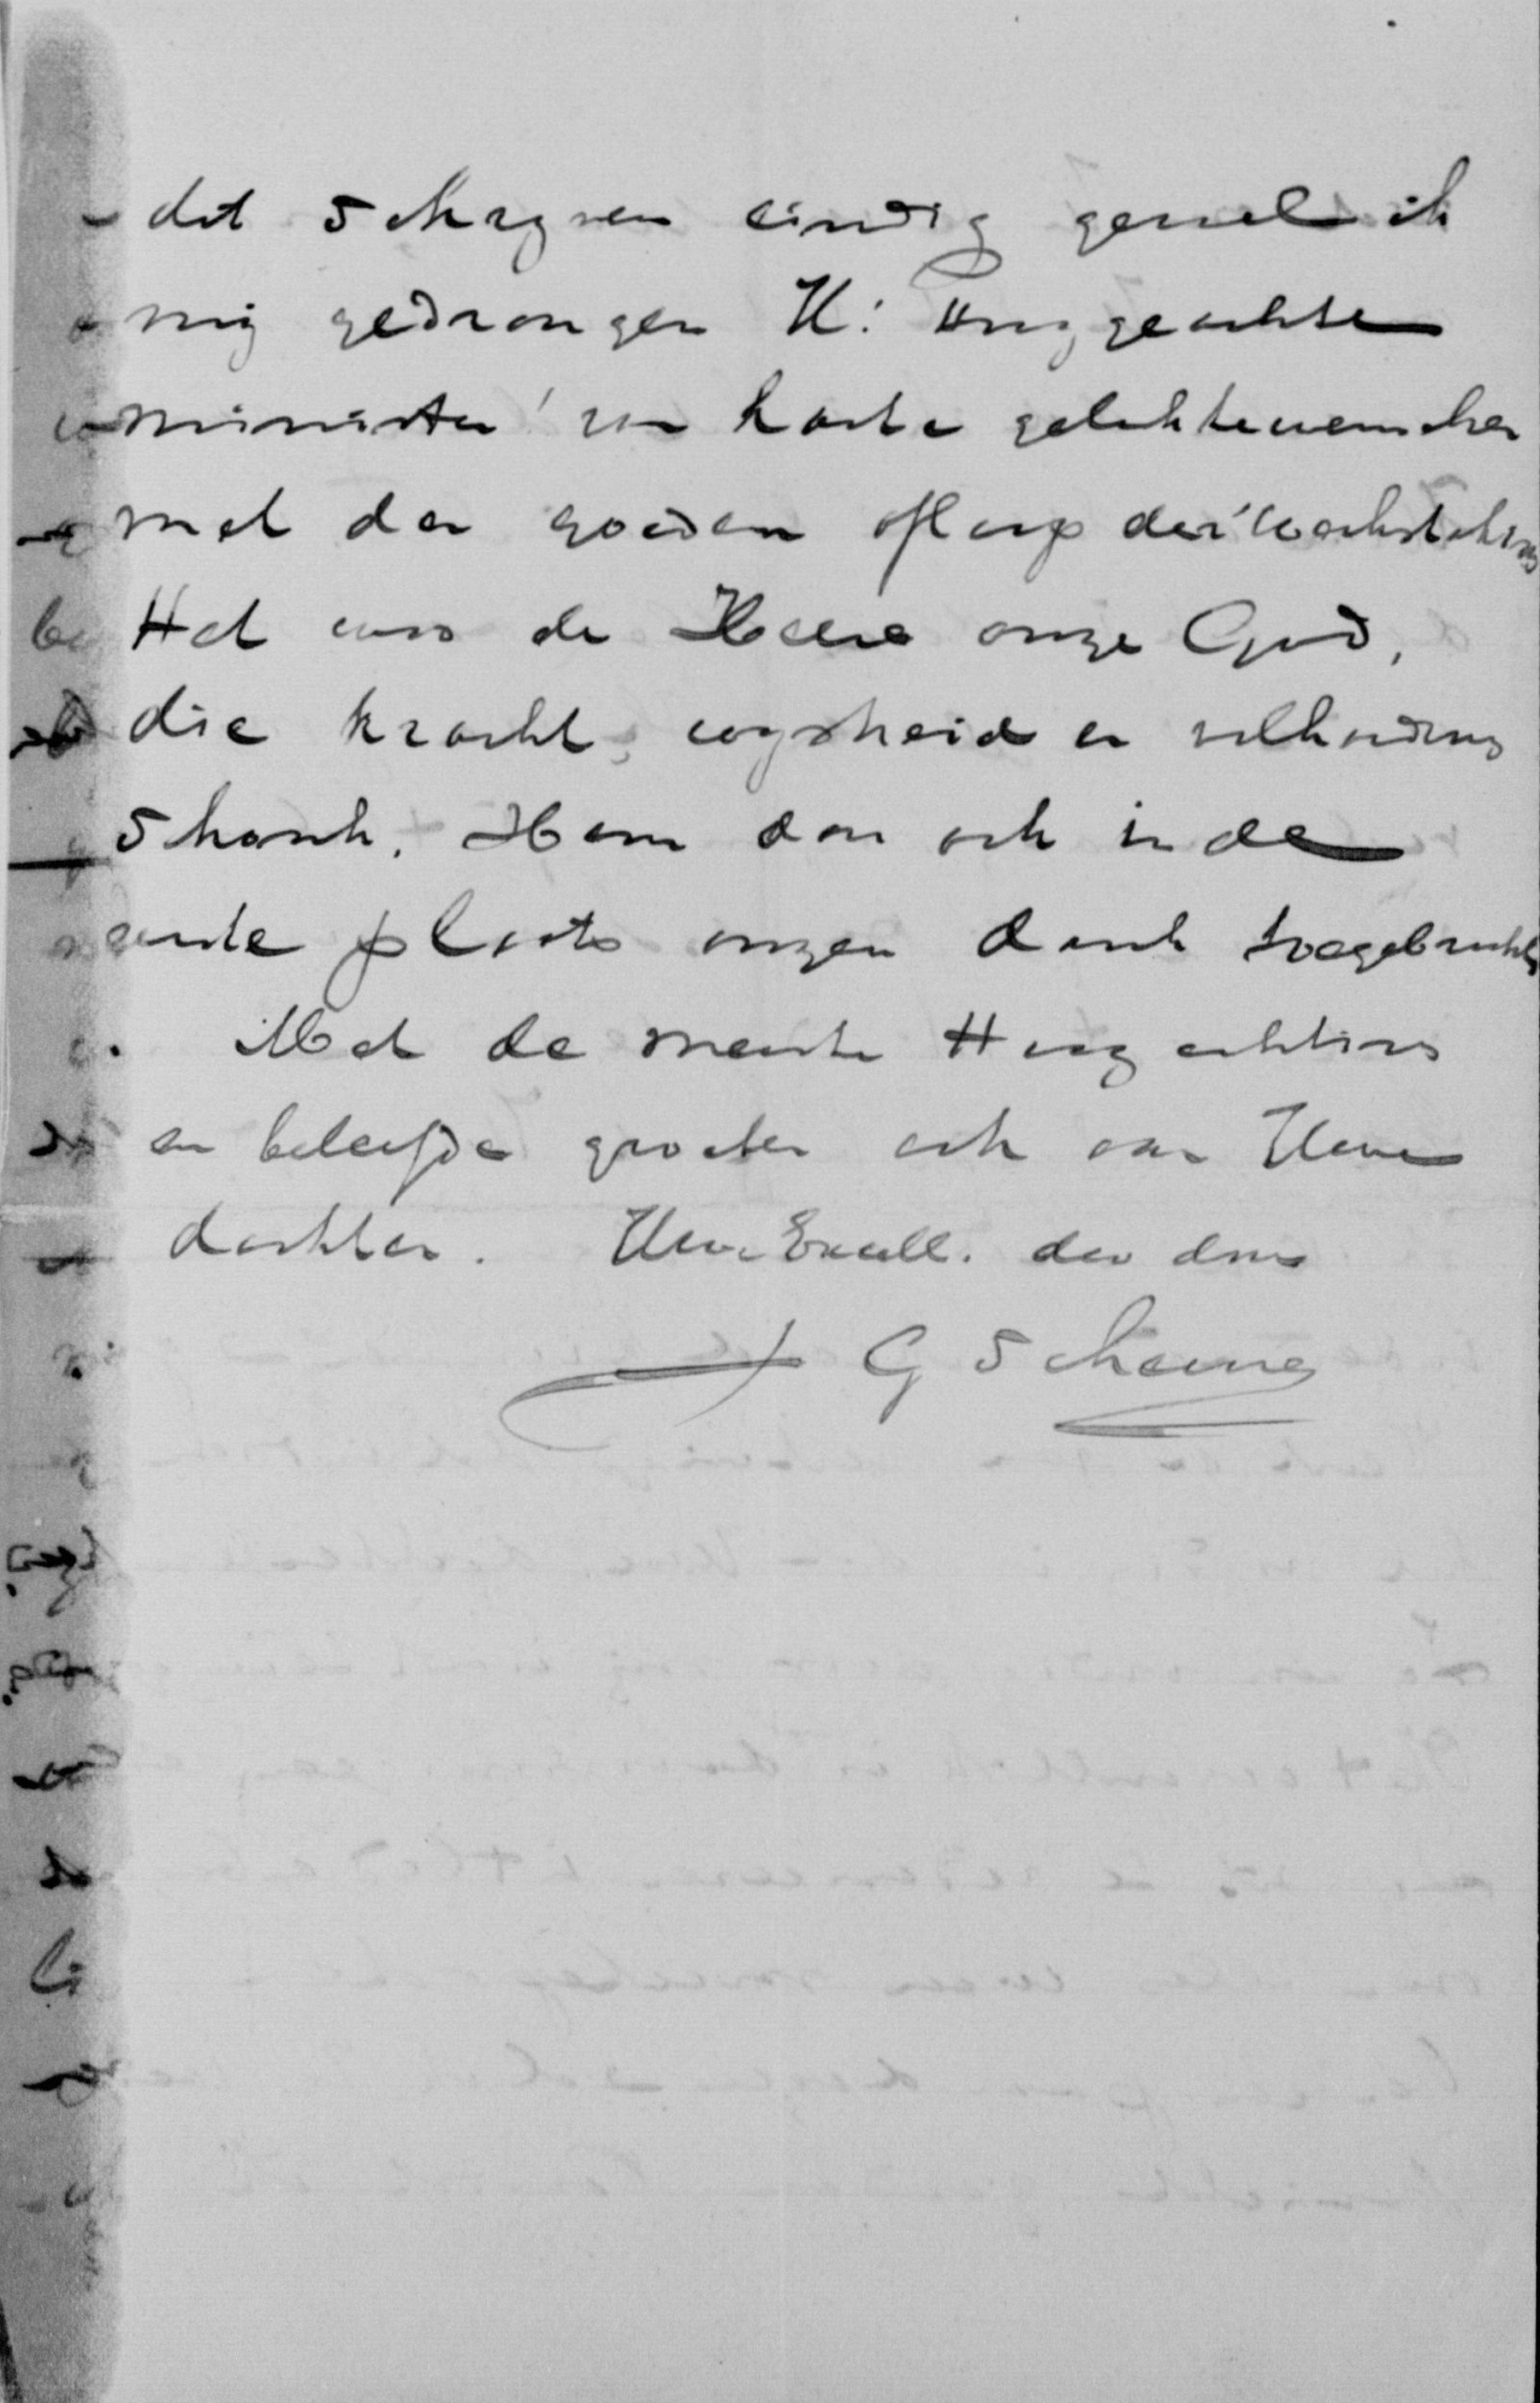 dit schryven eindig gevoel ik
mij gedrongen U! Hooggeachte
minister! van harte geluktewenschen
met den goeden afloop der werkstaking
Het was de Heere onze God,
die kracht, wysheid en volharding
schonk. Hem dan ook in de
eerste plaats onzen dank toegebracht
Met de meeste Hoogachting
en beleefde groeten ook aan Uwe
dochter. Uwe Excell. dw dnr
G Scheurer